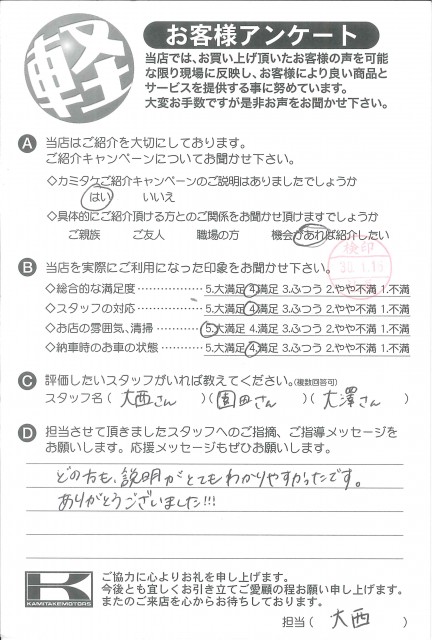 軽
お客様アンケート
当店では、お買い上げ頂いたお客様の声を可能
な限り現場に反映し、お客様により良い商品と
サービスを提供する事に努めています。
大変お手数ですが是非お声をお聞かせ下さい。
A 当店はご紹介を大切にしております。
ご紹介キャンペーンについてお聞かせ下さい。
◇カミタケご紹介キャンペーンのご説明はありましたでしょうか
はい いいえ
◇具体的にご紹介頂ける方とのご関係をお聞かせ頂けますでしょうか
ご親族 ご友人 職場の方 機会があれば紹介したい
検印
B 当店を実際にご利用になった印象をお聞かせ下さい。
◇総合的な満足度 …………… 5.大満足 4.満足 3.ふつう 2.やや不満 1.不満
◇スタッフの対応 …………… 5.大満足 4.満足 3.ふつう 2.やや不満 1.不満
◇お店の雰囲気、清掃 ……… 5.大満足 4.満足 3.ふつう 2.やや不満 1.不満
◇納車時のお車の状態 ……… 5.大満足 4.満足 3.ふつう 2.やや不満 1.不満
C 評価したいスタッフがいれば教えてください。(複数回答可)
スタッフ名 ( 大西さん )( 園田さん )( 大澤さん )
D 担当させて頂きましたスタッフへのご指摘、ご指導メッセージを
お願いします。応援メッセージもぜひお願いします。
どの方も、説明がとてもわかりやすかったです。
ありがとうございました!!!
K
KAMITAKEMOTORS
ご協力に心よりお礼を申し上げます。
今後とも宜しくお引き立てご愛顧の程お願い申し上げます。
またのご来店を心からお待ちしております。
担当 ( 大西 )